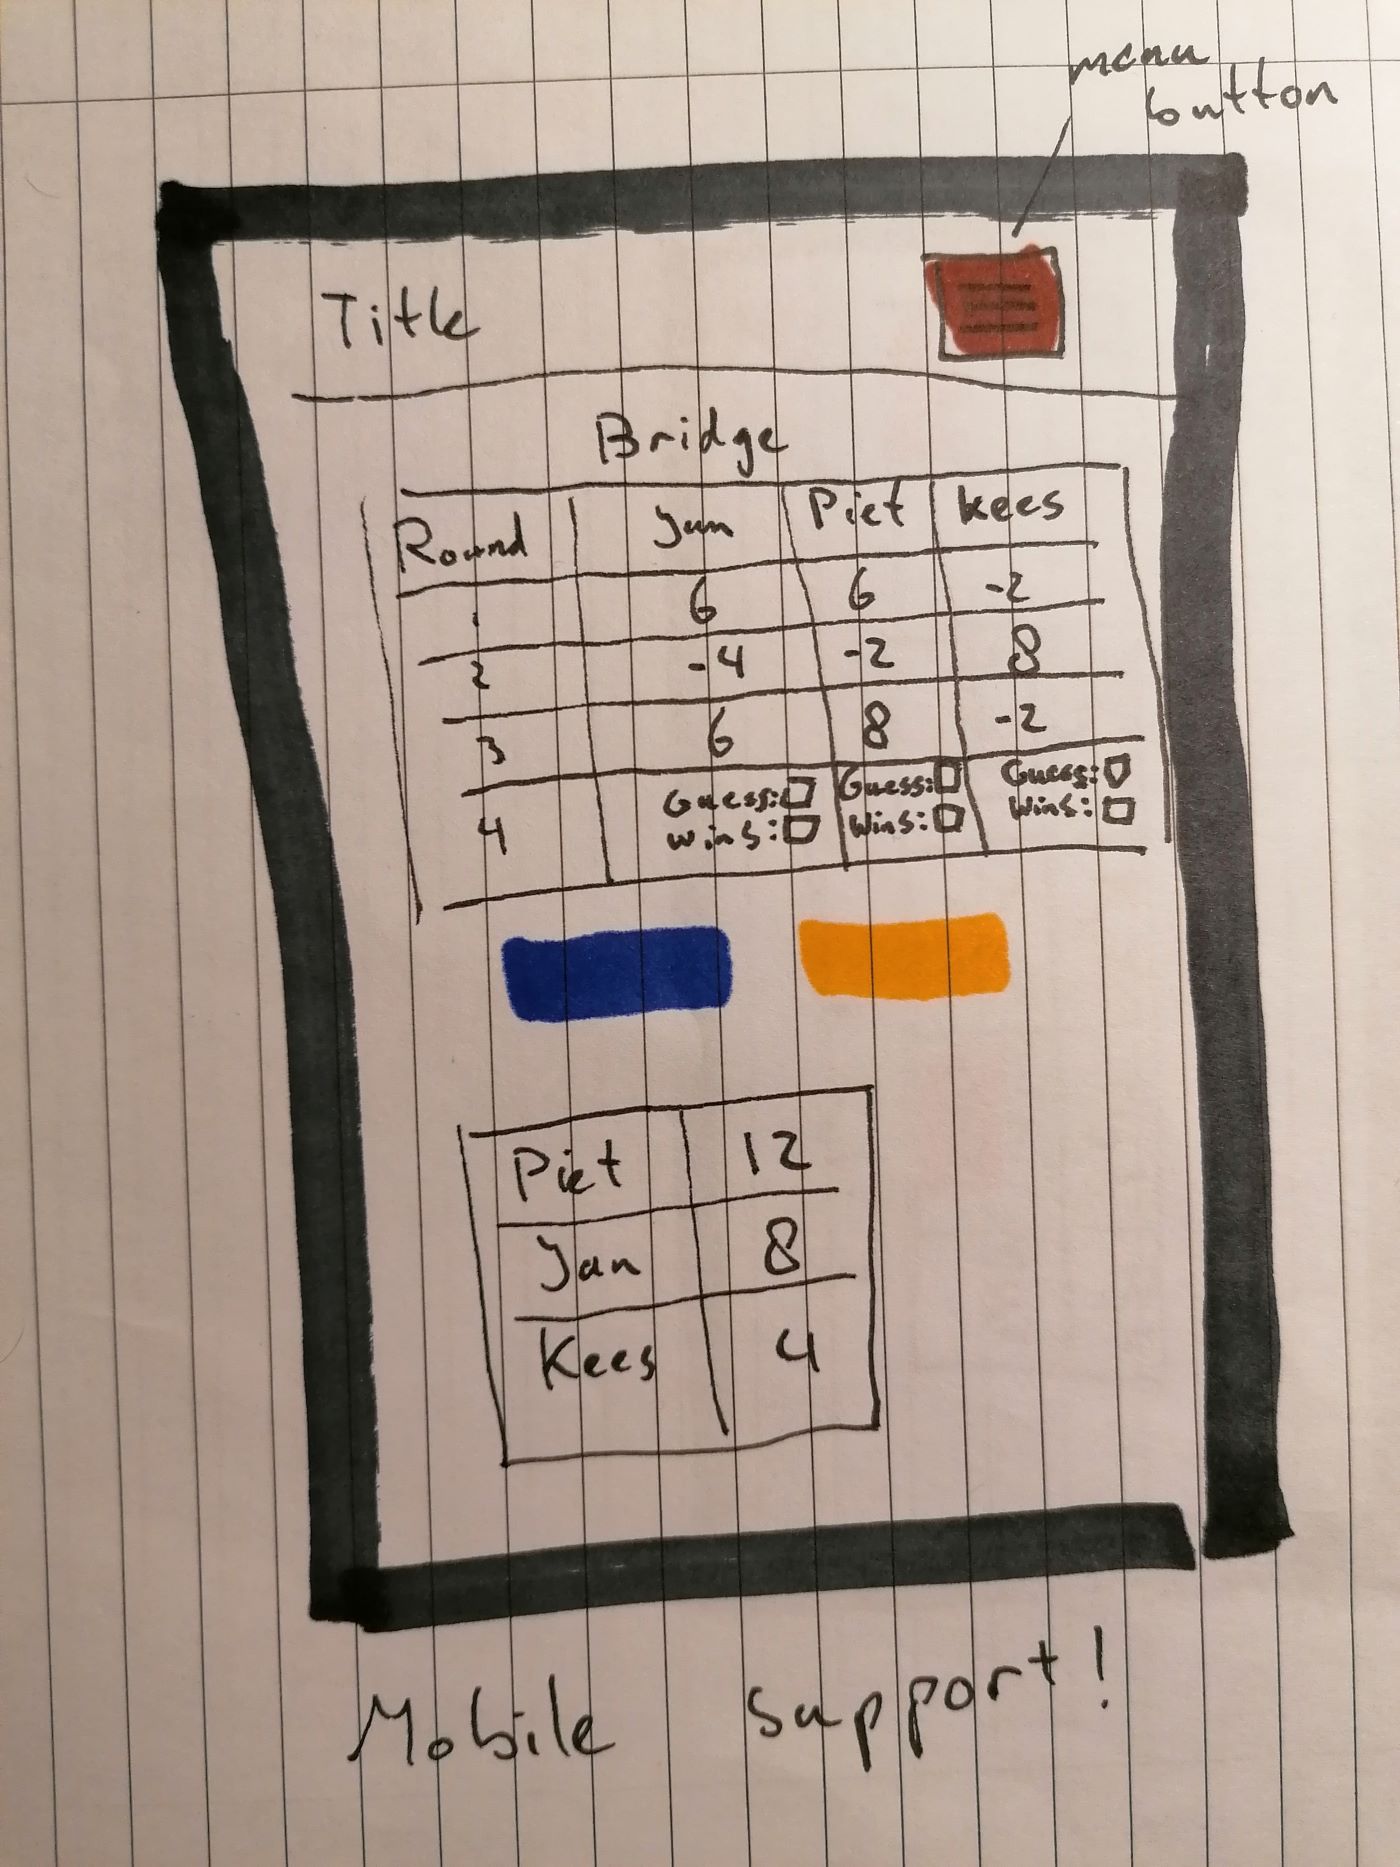 menu
button
Title
Bridge
Round Jan Piet Kees
1 6 6 -2
2 -4 -2 8
3 6 8 -2
4 Guess: Guess: Guess:
Wins: Wins: Wins:
Piet 12
Jan 8
Kees 4
Mobile support!